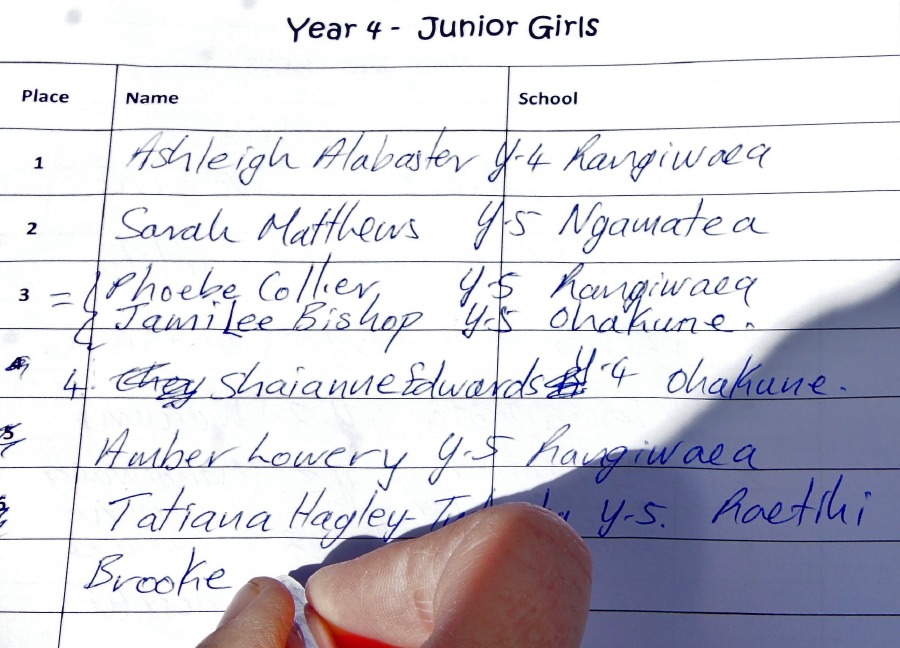 Year 4 - Junior Girls
Place Name School
1 Ashleigh Alabaster Y-4 Rangiwaea
2 Sarah Matthews Y-5 Ngamatea
3 = { Phoebe Collier Y-5 Rangiwaea
Jamilee Bishop Y-5 Ohakune.
4. Shaianne Edwards Y-4 Ohakune.
5 Amber Lowery Y-5 Rangiwaea
Tatiana Hagley- Y-5. Raetihi
Brooke